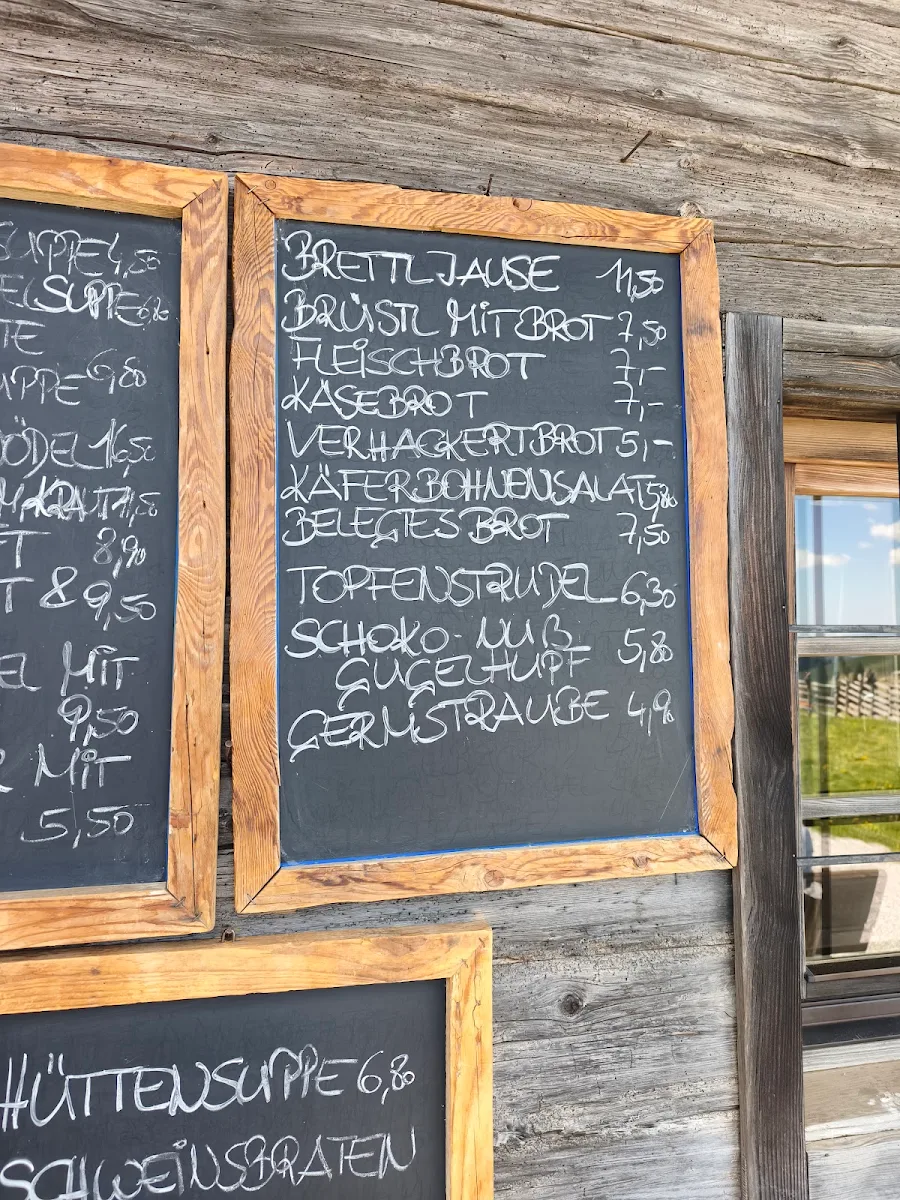 SUPPE 4,50
SUPPE 6,80
TE
UPPE 6,80
ÖDEL 16,50
KRAUT 11,50
T 8,90
T & 9,50
EL MIT
9,50
MIT
5,50
BRETTLJAUSE 11,50
BRÜSTL MIT BROT 7,50
FLEISCHBROT 7,-
KÄSEBROT 7,-
VERHACKERTBROT 5,-
KÄFERBOHNENSALAT 5,80
BELEGTES BROT 7,50
TOPFENSTRUDEL 6,30
SCHOKO-NUß 5,80
GUGELHUPF
GERMSTRAUBE 4,90
HÜTTENSUPPE 6,80
SCHWEINSBRATEN